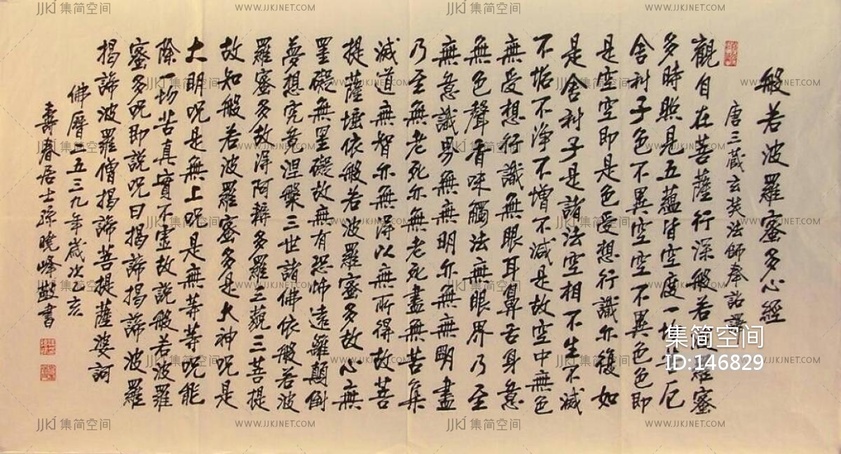 般若波羅蜜多心經
唐三藏玄奘法師奉詔譯
觀自在菩薩行深般若波羅蜜
多時照見五蘊皆空度一切苦厄
舍利子色不異空空不異色色即
是空空即是色受想行識亦復如
是舍利子是諸法空相不生不滅
不垢不淨不增不減是故空中無色
無受想行識無眼耳鼻舌身意
無色聲香味觸法無眼界乃至
無意識界無無明亦無無明盡
乃至無老死亦無老死盡無苦集
滅道無智亦無得以無所得故菩
提薩埵依般若波羅蜜多故心無
罣礙無罣礙故無有恐怖遠離顛倒
夢想究竟涅槃三世諸佛依般若波
羅蜜多故得阿耨多羅三藐三菩提
故知般若波羅蜜多是大神咒是
大明咒是無上咒是無等等咒能
除一切苦真實不虛故說般若波羅
蜜多咒即說咒曰揭諦揭諦波羅
揭諦波羅僧揭諦菩提薩婆訶
佛曆二五三九年歲次乙亥
壽春居士孫曉峰敬書
集简空间
ID:146829
JJKJ 集简空间
WWW.JJKJNET.COM